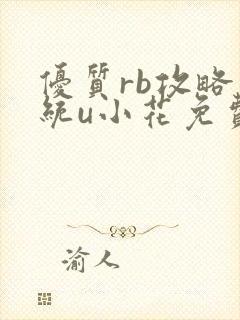 優質rb攻略
統u小花免費
渝人